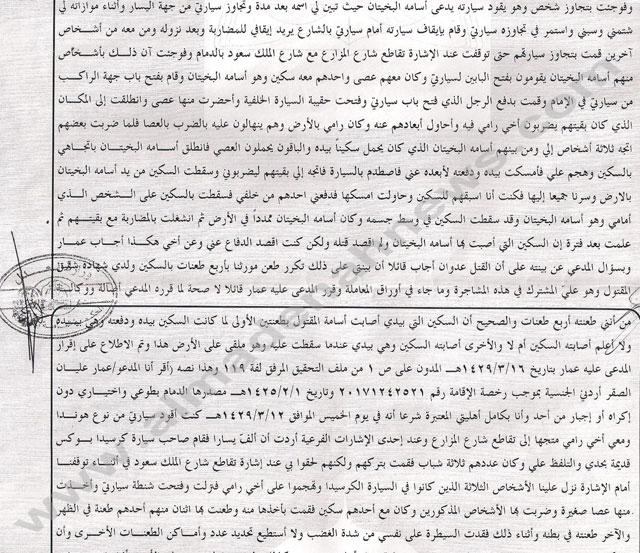 وفوجئت بتجاوز شخص وهو يقود سيارته يدعى أسامه البخيتان حيث تبين لي اسمه بعد مدة وتجاوز سيارتي من جهة اليسار وأثناء موازاته لي
شتمني وسبني واستمر في تجاوزه سيارتي وقام بإيقاف سيارته أمام سيارتي بالشارع يريد إيقافي للمضاربة وبعد نزوله ومن معه من أشخاص
آخرين قمت بتجاوز سيارتهم حتى توقفت عند الإشارة تقاطع شارع المزارع مع شارع الملك سعود بالدمام وفوجئت آن ذلك بأشخاص
منهم أسامه البخيتان يقومون بفتح البابين لسيارتي وكان معهم عصى واحدهم معه سكين وهو أسامه البخيتان وقام بفتح باب جهة الراكب
من سيارتي في الإمام وقمت بدفع الرجل الذي فتح باب سيارتي وفتحت حقيبة السيارة الخلفية وأحضرت منها عصى وانطلقت إلى المكان
الذي كان بقيتهم يضربون أخي رامي فيه وأحاول أبعادهم عنه وكان رامي بالأرض وهم ينهالون عليه بالضرب بالعصا فلما ضربت بعضهم
اتجه ثلاثة أشخاص إلي ومن بينهم أسامه البخيتان الذي كان يحمل سكيناً بيده والباقون يحملون العصي فانطلق أسامه البخيتان باتجاهي
بالسكين وهجم علي فأمسكت بيده ودفعته لأبعده عني فاصطدم بالسيارة فاتجه إلي بقيتهم ليضربوني وسقطت السكين من يد أسامه البخيتان
بالارض وسرنا جميعا إليها فكنت أنا اسبقهم للسكين وحاولت امسكها فدفعني احدهم من خلفي فسقطت بالسكين على الشخص الذي
أمامي وهو أسامه البخيتان وقد سقطت السكين في وسط جسمه وكان أسامه البخيتان ممدداً في الأرض ثم انشغلت بالمضاربة مع بقيتهم ثم
علمت بعد فترة إن السكين التي أصبت بها أسامه البخيتان ولم اقصد قتله ولكن كنت اقصد الدفاع عني وعن أخي هكذا أجاب عمار
وبسؤال المدعي عن بينته على أن القتل عدوان أجاب قائلا أن بينتي على ذلك تكرر طعن مورثنا بأربع طعنات بالسكين ولدي شهادة شقيق
المقتول وهو علي المشترك في هذه المشاجرة وما جاء في أوراق المعاملة وقرر المدعى عليه عمار قائلا لا صحة لما قرره المدعي أصالة ووكالة
من أنني طعنته أربع طعنات والصحيح أن السكين التي بيدي أصابت أسامة المقتول بطعنتين الأولى لما كانت السكين بيده ودفعته وهي بيده
ولا أعلم أصابته السكين أم لا والأخرى أصابته السكين وهي بيدي عندما سقطت عليه وهو ملقى على الأرض هذا وتم الاطلاع على إقرار
المدعى عليه عمار بتاريخ ١٤٢٩/٣/١٦هـ المدون على ص ١ من ملف التحقيق المرفق لفة ١١٩ وهذا نصه أقر أنا المدعو/عمار عليان
الصقر أردني الجنسية بموجب رخصة الإقامة رقم ٢٠١٧١٢٤٢٥٢١ وتاريخ ١٤٢٥/٢/١هـ مصدرها الدمام بطوعي واختياري دون
إكراه أو إجبار من أحد وأنا بكامل أهليتي المعتبرة شرعا أنه في يوم الخميس الموافق ١٤٢٩/٣/١٢هـ كنت أقود سيارتي من نوع هوندا
ومعي أخي رامي متجها إلى تقاطع شارع المزارع وعند إحدى الإشارات الفرعية أردت أن ألف يسارا فقام صاحب سيارة كرسيدا بوكس
قديمة بحدي والتلفظ علي وكان عددهم ثلاثة شباب فقمت بتركهم ولكنهم لحقوا بي عند إشارة تقاطع شارع الملك سعود في أثناء توقفنا
أمام الإشارة نزل علينا الأشخاص الثلاثة الذين كانوا في السيارة الكرسيدا وتهجموا على أخي رامي فنزلت وفتحت شنطة سيارتي وأخذت
منها عصا صغيرة وضربت بها الأشخاص المذكورين وكان مع أحدهم سكين فقمت بأخذها منه وطعنت بها اثنان منهم أحدهم طعنة في الظهر
والآخر طعنته في بطنه وأثناء ذلك فقدت السيطرة على نفسي من شدة الغضب ولا أستطيع تحديد عدد وأماكن الطعنات الأخرى وأن